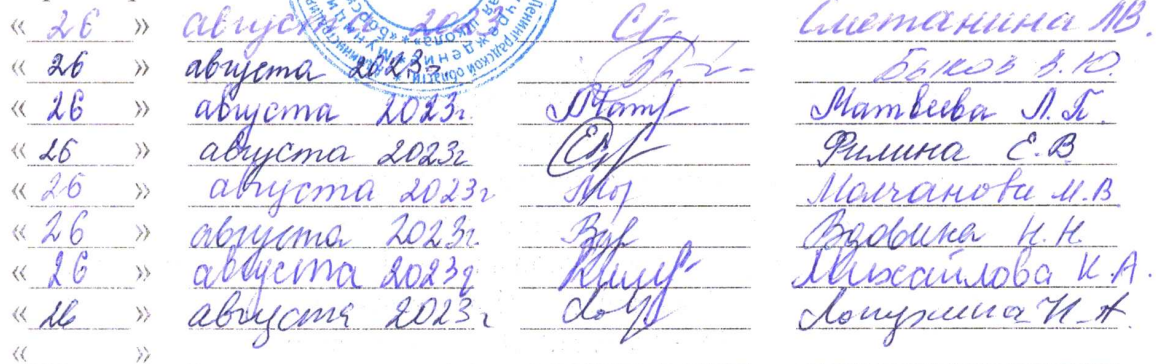 « 26 » августа 2023 Сметанина М.В.
« 26 » августа 2023г Быков В.Ю.
« 26 » августа 2023г Матвеева Л.П.
« 26 » августа 2023г Филина Е.В.
« 26 » августа 2023г Молчанова М.В.
« 26 » августа 2023г. Вдовина Н.Н.
« 26 » августа 2023г Михайлова К.А.
« 26 » августа 2023г
« »